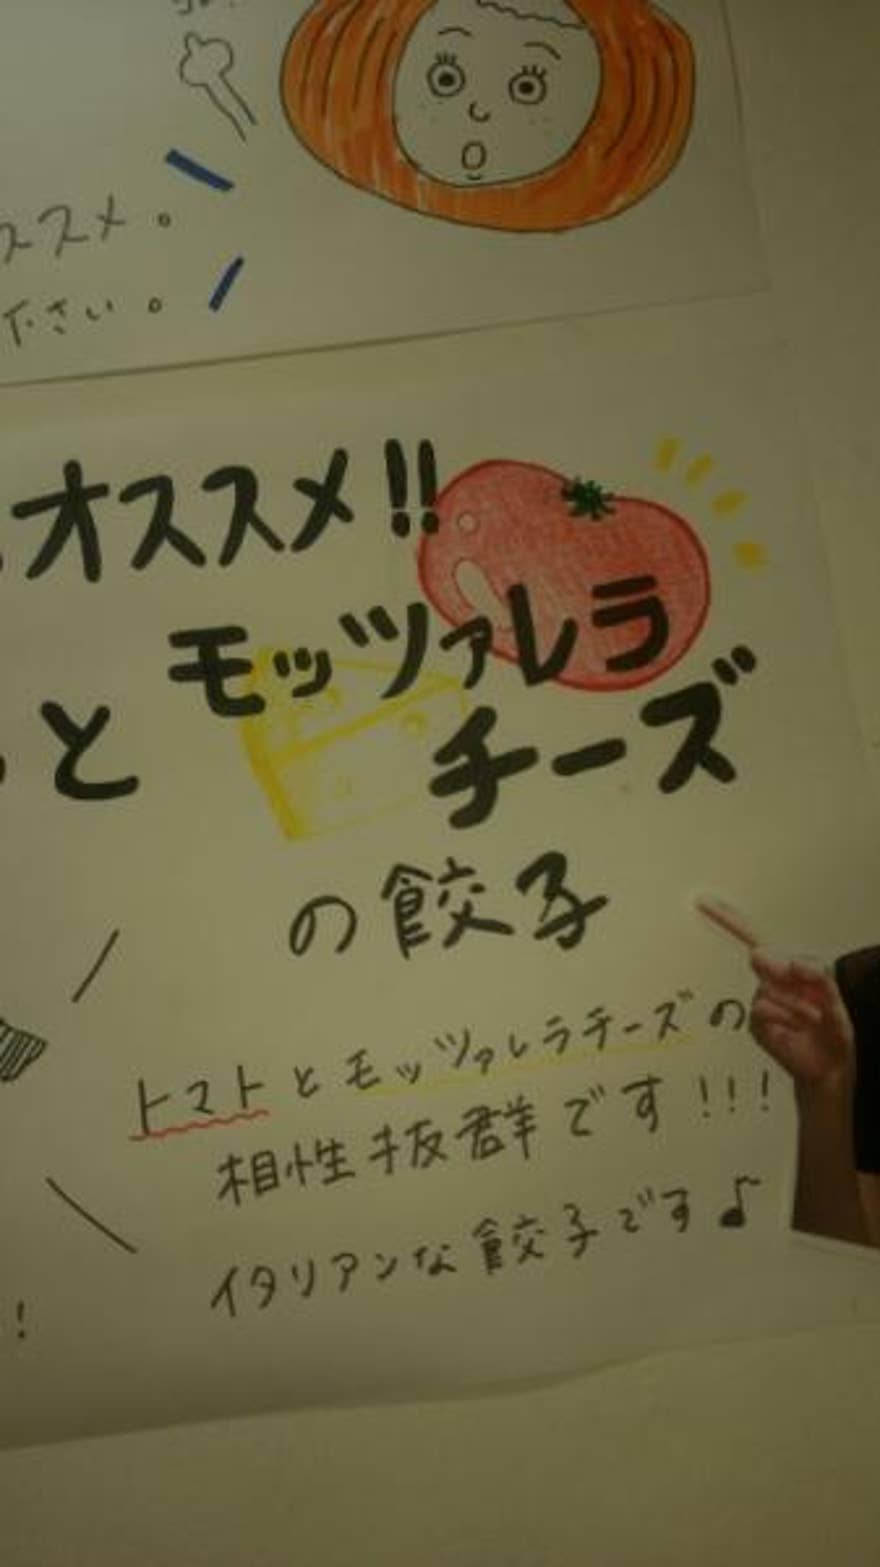 ススメ。
下さい。
オススメ!!
と モッツァレラ
チーズ
の餃子
トマトとモッツァレラチーズの
相性抜群です!!!
イタリアンな餃子です♪
!